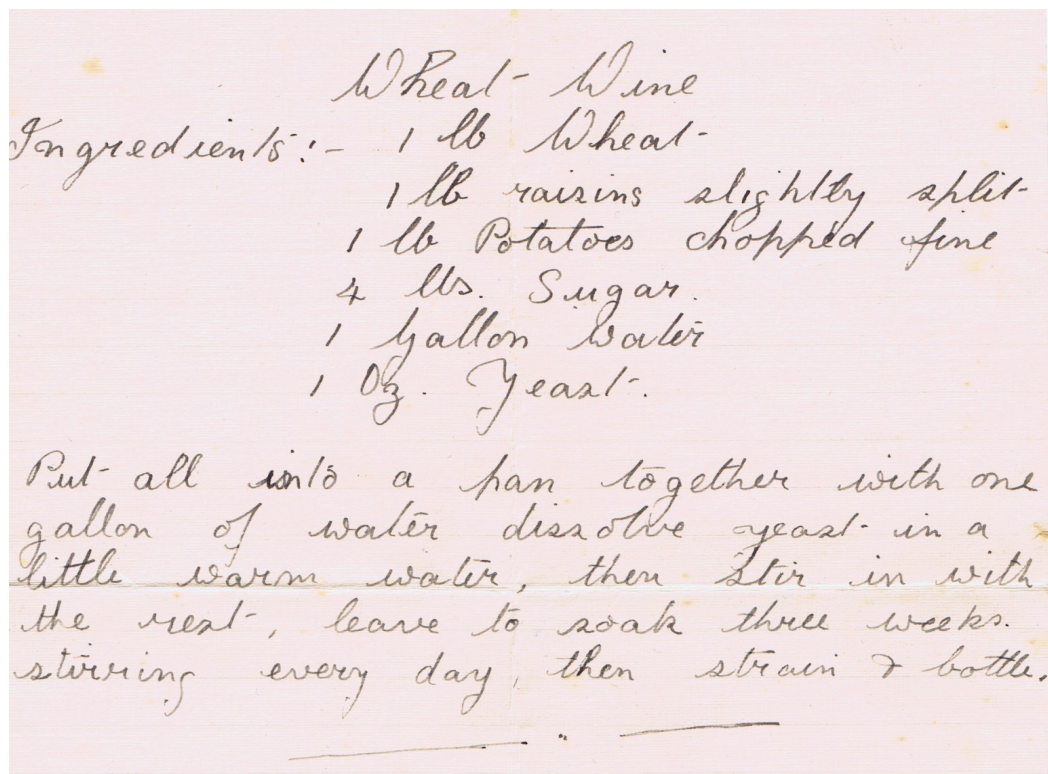 Wheat Wine
Ingredients:- 1 lb Wheat
1 lb raisins slightly split
1 lb Potatoes chopped fine
4 lbs. Sugar.
1 Gallon water
1 Oz. Yeast.
Put all into a pan together with one
gallon of water dissolve yeast in a
little warm water, then stir in with
the rest, leave to soak three weeks.
stirring every day, then strain & bottle.